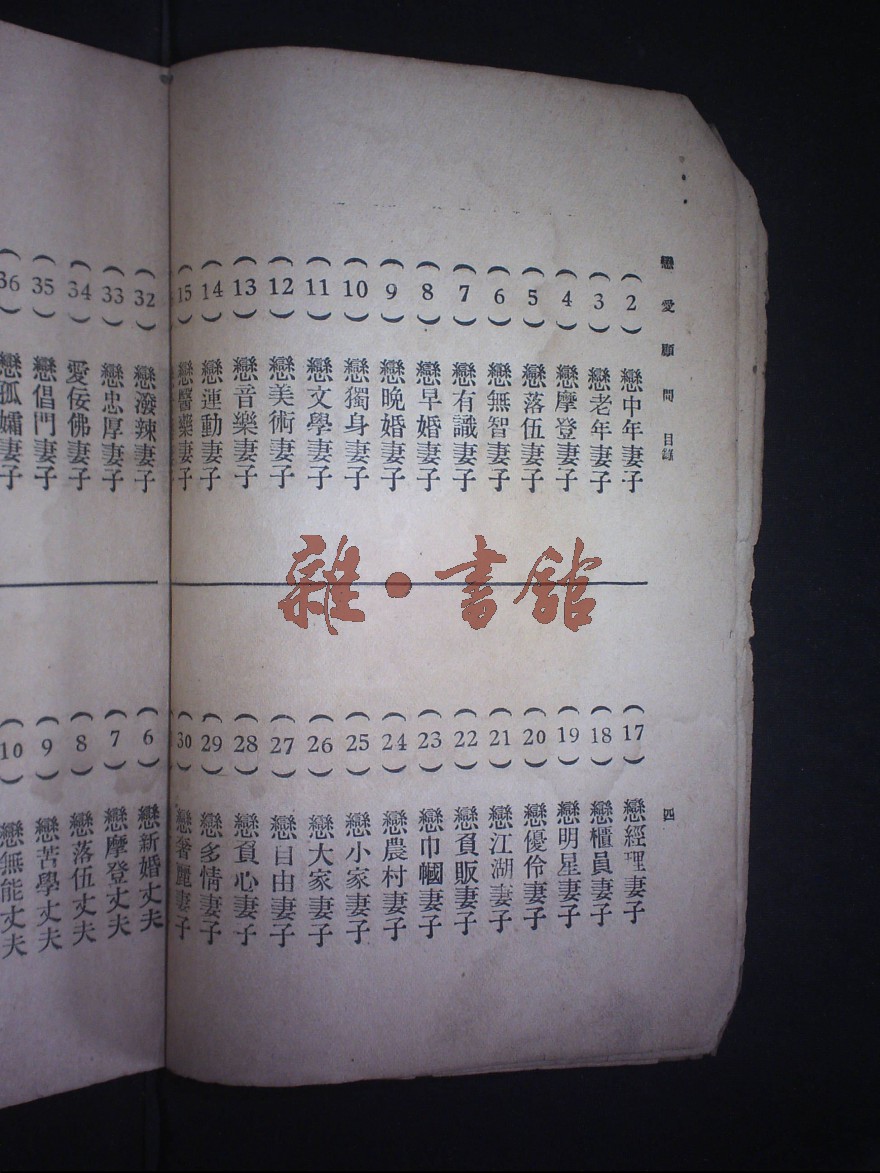 戀愛顧問 目錄
四
(2) 戀中年妻子
(3) 戀老年妻子
(4) 戀摩登妻子
(5) 戀落伍妻子
(6) 戀無智妻子
(7) 戀有識妻子
(8) 戀早婚妻子
(9) 戀晚婚妻子
(10) 戀獨身妻子
(11) 戀文學妻子
(12) 戀美術妻子
(13) 戀音樂妻子
(14) 戀運動妻子
(15) 戀醫藥妻子
(17) 戀經理妻子
(18) 戀櫃員妻子
(19) 戀明星妻子
(20) 戀優伶妻子
(21) 戀江湖妻子
(22) 戀負販妻子
(23) 戀巾幗妻子
(24) 戀農村妻子
(25) 戀小家妻子
(26) 戀大家妻子
(27) 戀自由妻子
(28) 戀負心妻子
(29) 戀多情妻子
(30) 戀奢麗妻子
(32) 戀潑辣妻子
(33) 戀忠厚妻子
(34) 愛佞佛妻子
(35) 戀倡門妻子
(36) 戀孤孀妻子
(6) 戀新婚丈夫
(7) 戀摩登丈夫
(8) 戀落伍丈夫
(9) 戀苦學丈夫
(10) 戀無能丈夫
雜·書館